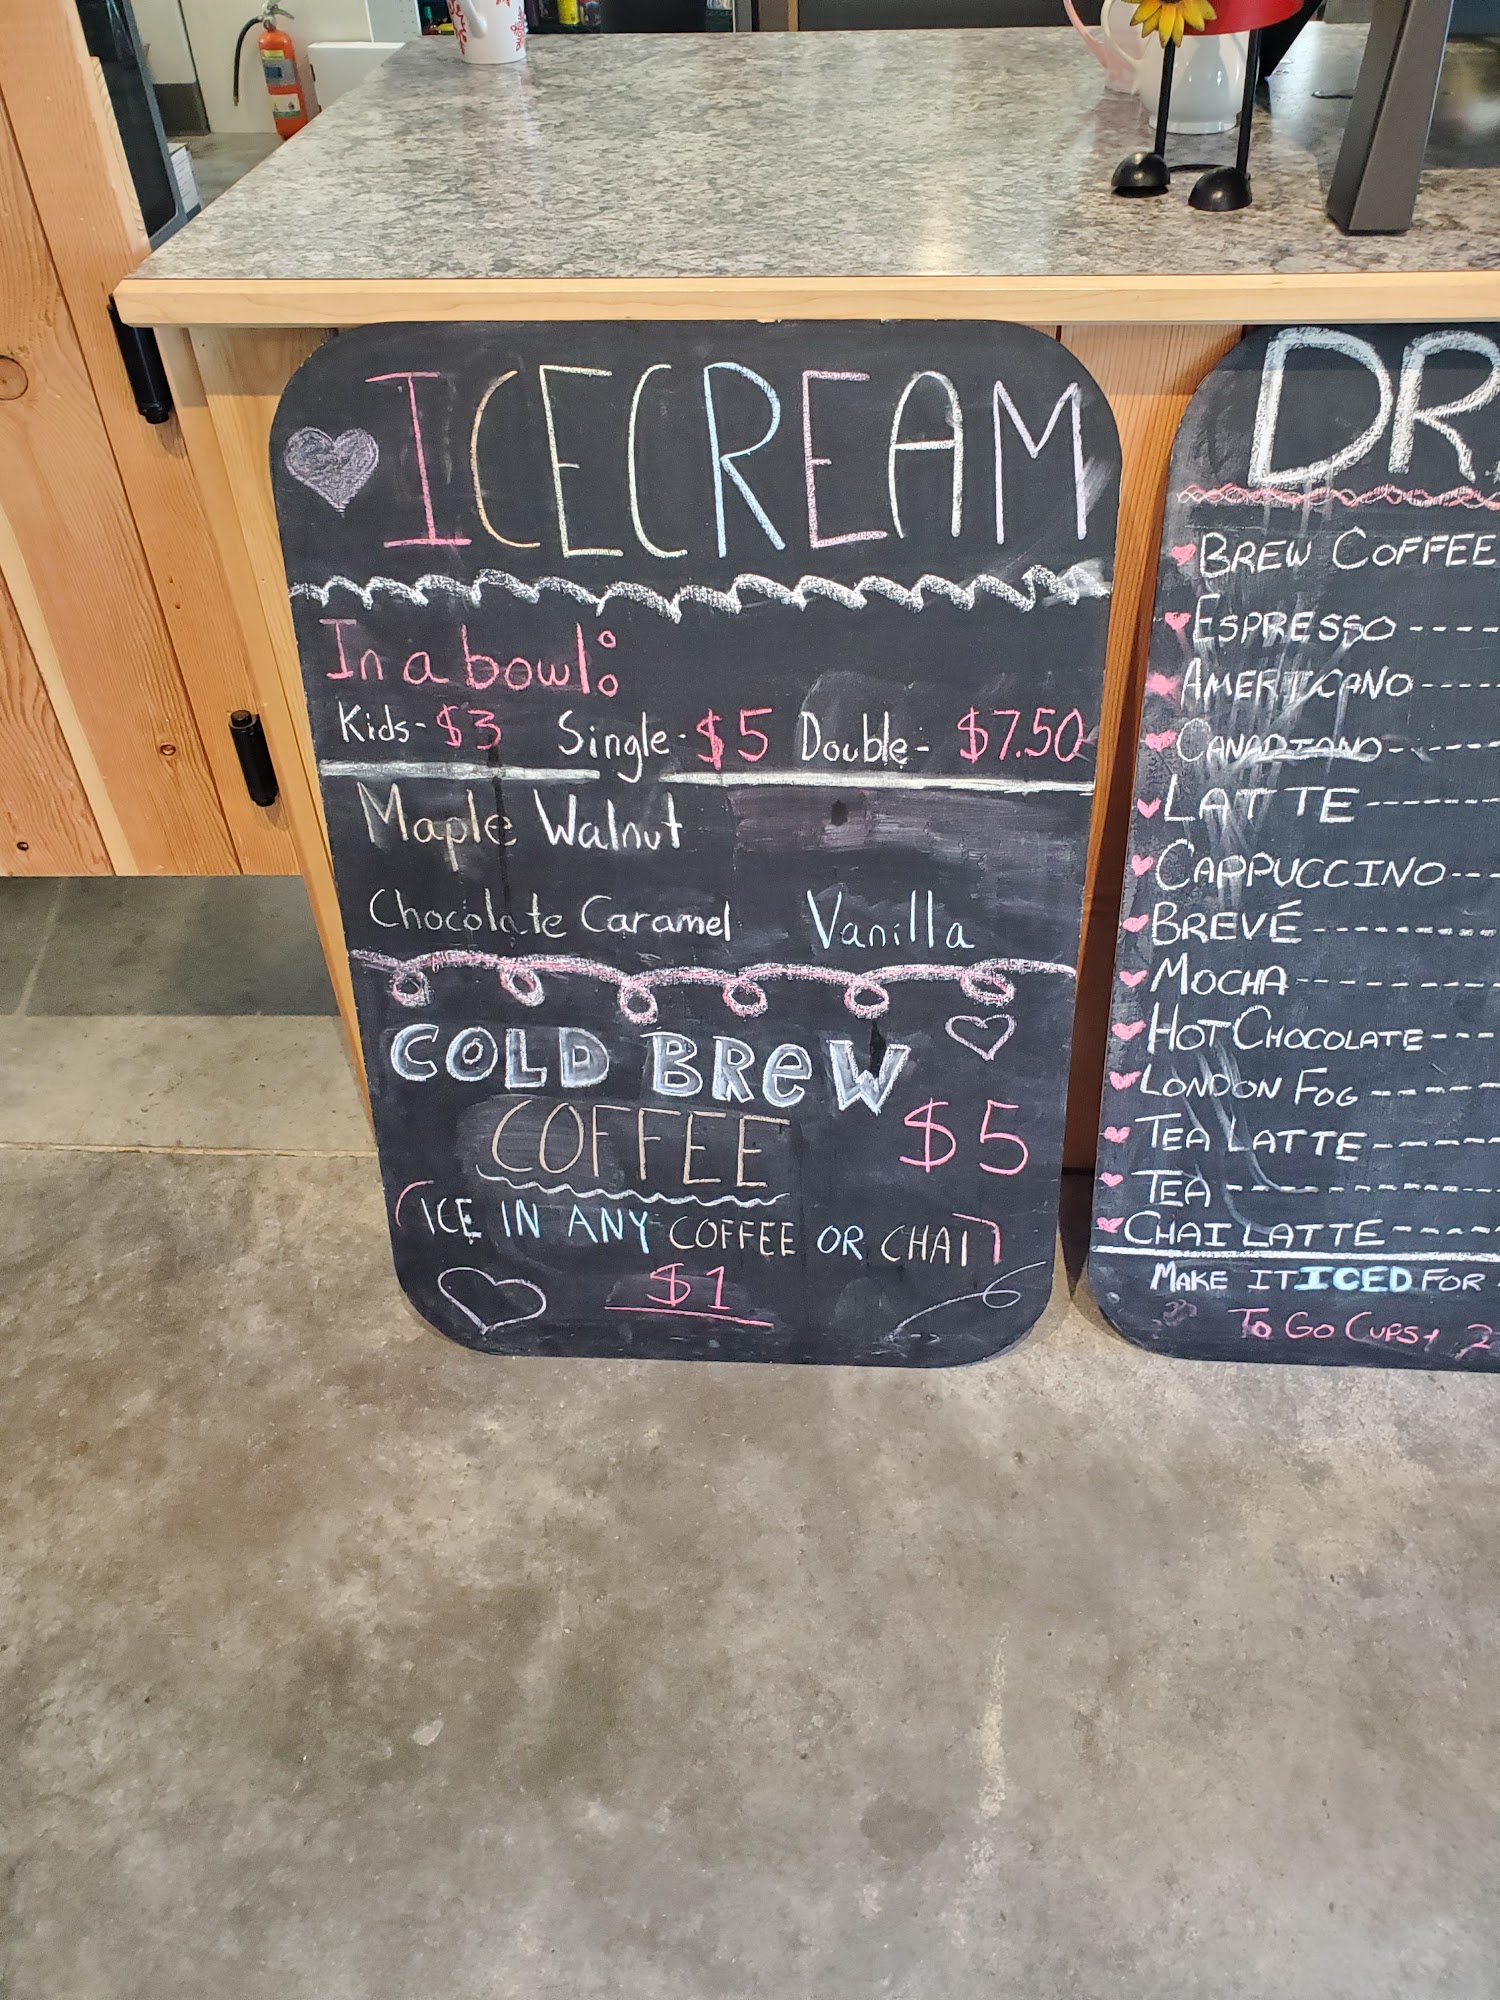 ICECREAM
In a bowl:
Kids- $3 Single- $5 Double- $7.50
Maple Walnut
Chocolate Caramel Vanilla
COLD BREW
COFFEE $5
(ICE IN ANY COFFEE OR CHAI)
$1
DR
BREW COFFEE
ESPRESSO ----
AMERICANO ----
CANADIANO -----
LATTE --------
CAPPUCCINO ---
BREVÉ -----------
MOCHA ----------
HOT CHOCOLATE ---
LONDON FOG ----
TEA LATTE ------
TEA -----------
CHAI LATTE -----
MAKE IT ICED FOR
TO GO CUPS +